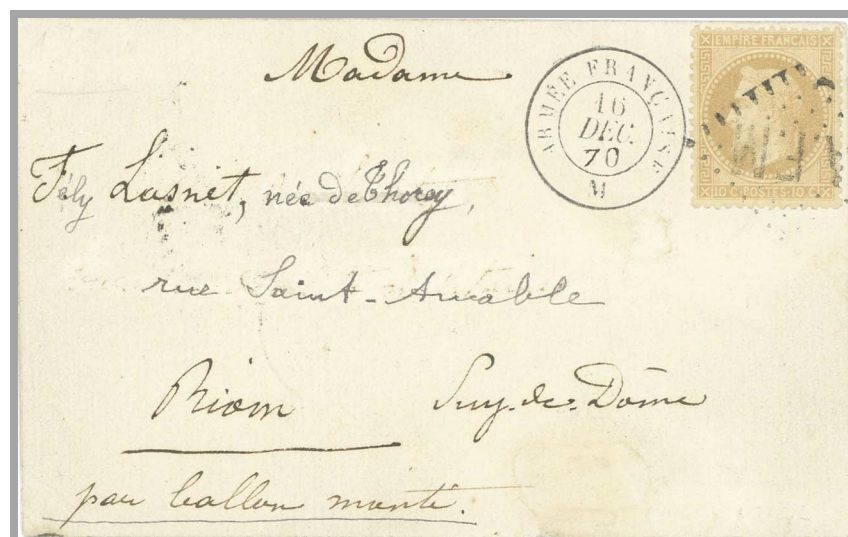 Madame
ARMÉE FRANÇAISE
16
DEC.
70
M
EMPIRE FRANCAIS
10 C. POSTES 10 C.
Fély Lasnet, née de Thorey,
rue Saint-Amable
Riom Puy-de-Dôme
par ballon monté.